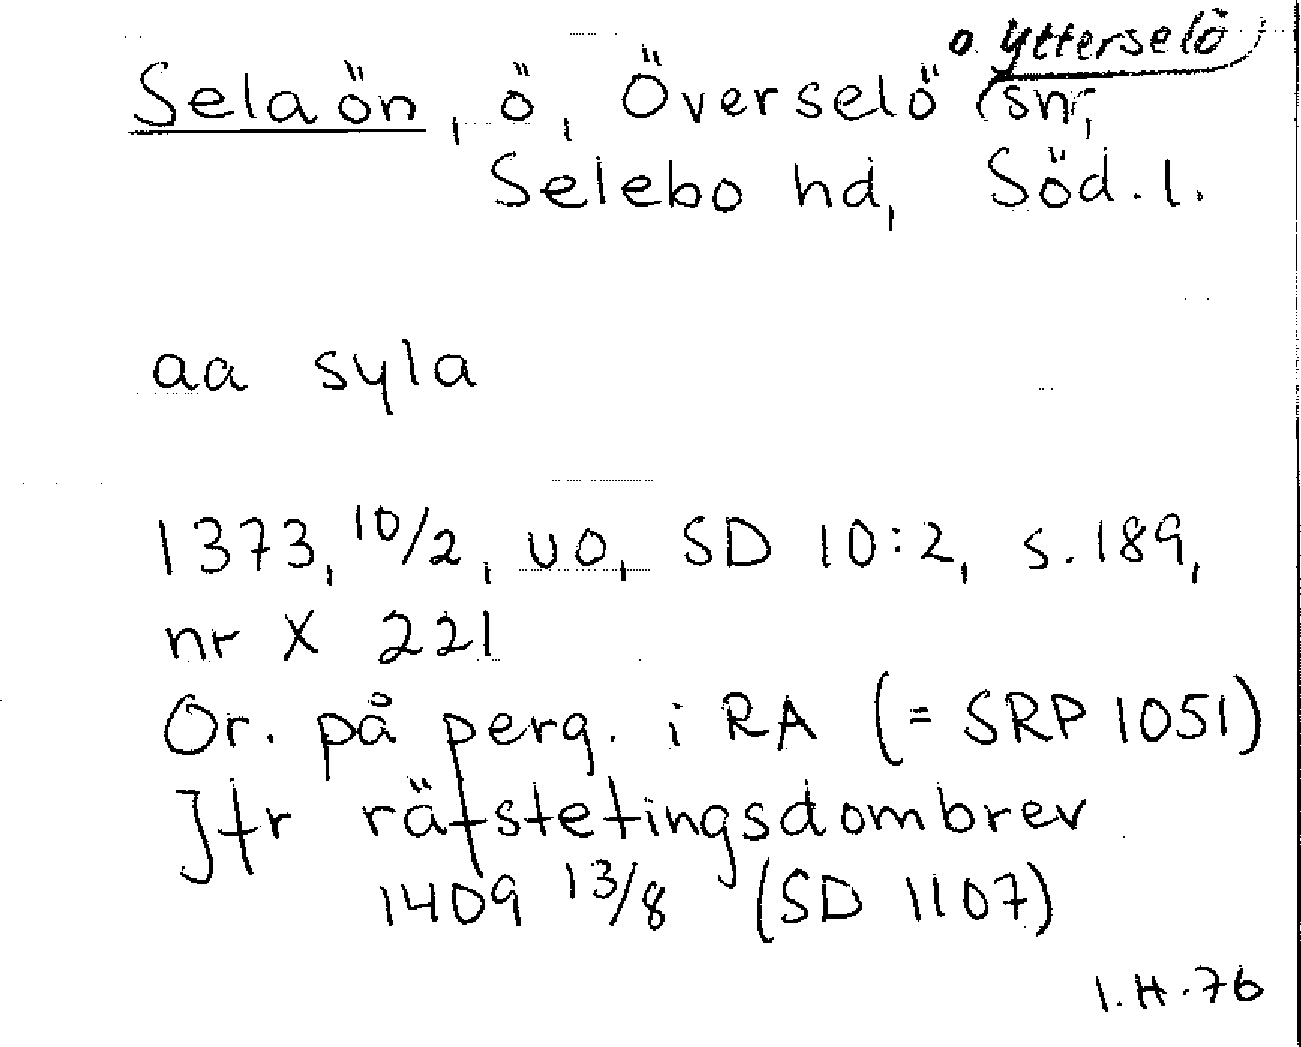 o. Ytterselö
Selaön, ö, Överselö (snr,
Selebo hd, Söd. l.
aa syla
1373, 10/2, uo, SD 10:2, s. 189,
nr X 221
Or. på perg. i RA (= SRP 1051)
Jfr räfstetingsdombrev
1409 13/8 (SD 1107)
I.H.76